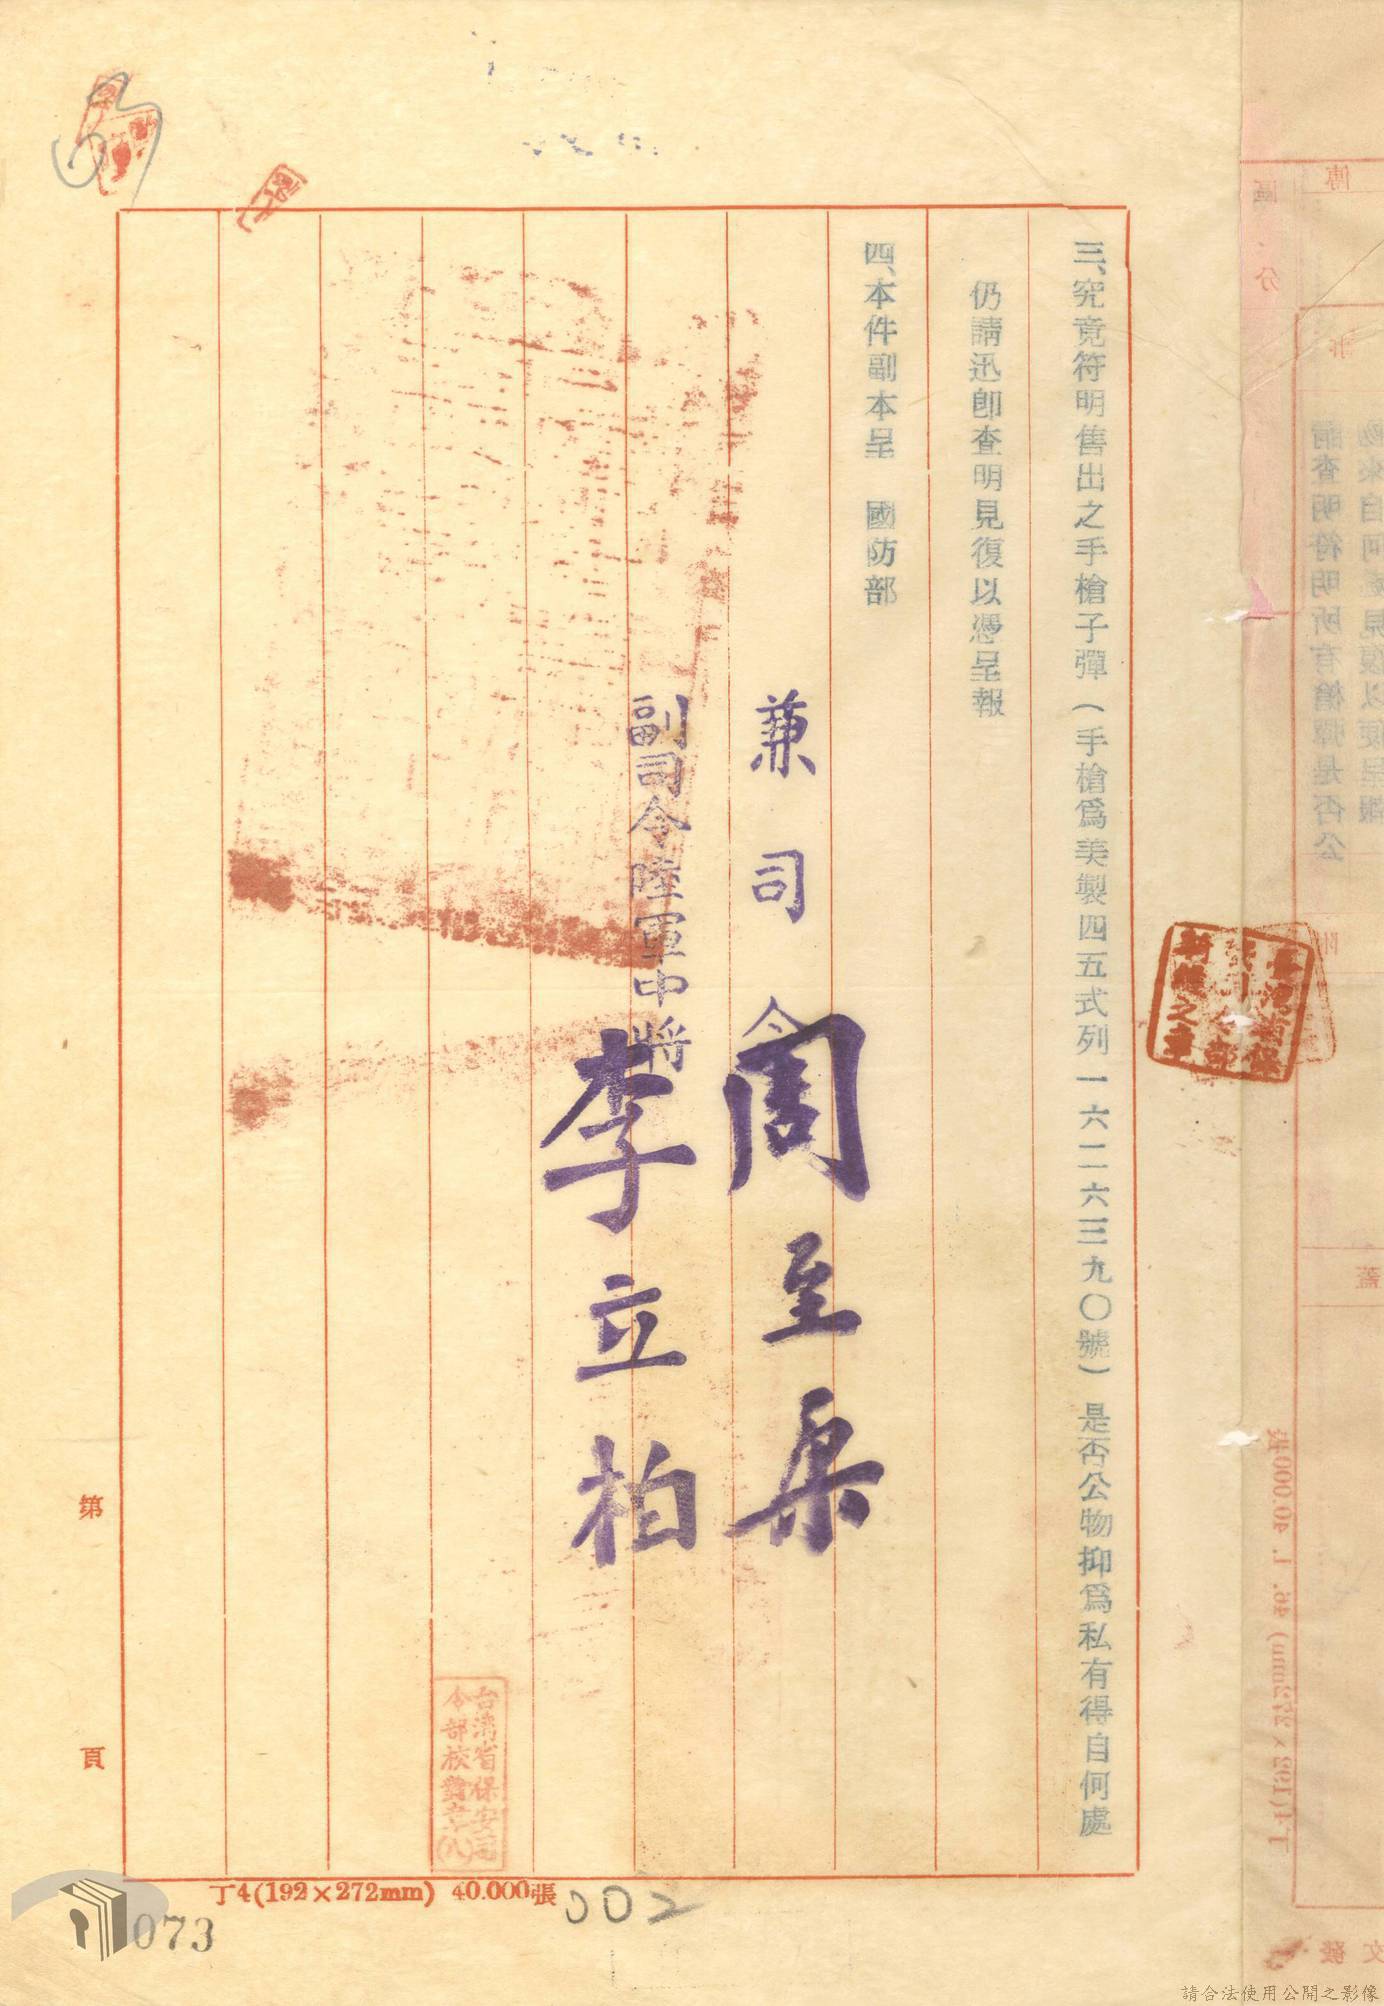 三、究竟符明售出之手槍子彈（手槍爲美製四五式列一六二六三九〇號）是否公物抑爲私有得自何處
仍請迅卽查明見復以憑呈報
四、本件副本呈　國防部
兼司令
周至柔
副司令陸軍中將
李立柏
台灣省保安司
令部校對章(八)
第　頁
丁4(192×272mm) 40.000張
002
073
請查明符明所有槍彈是否公
物來自何處見復以便呈報
請合法使用公開之影像